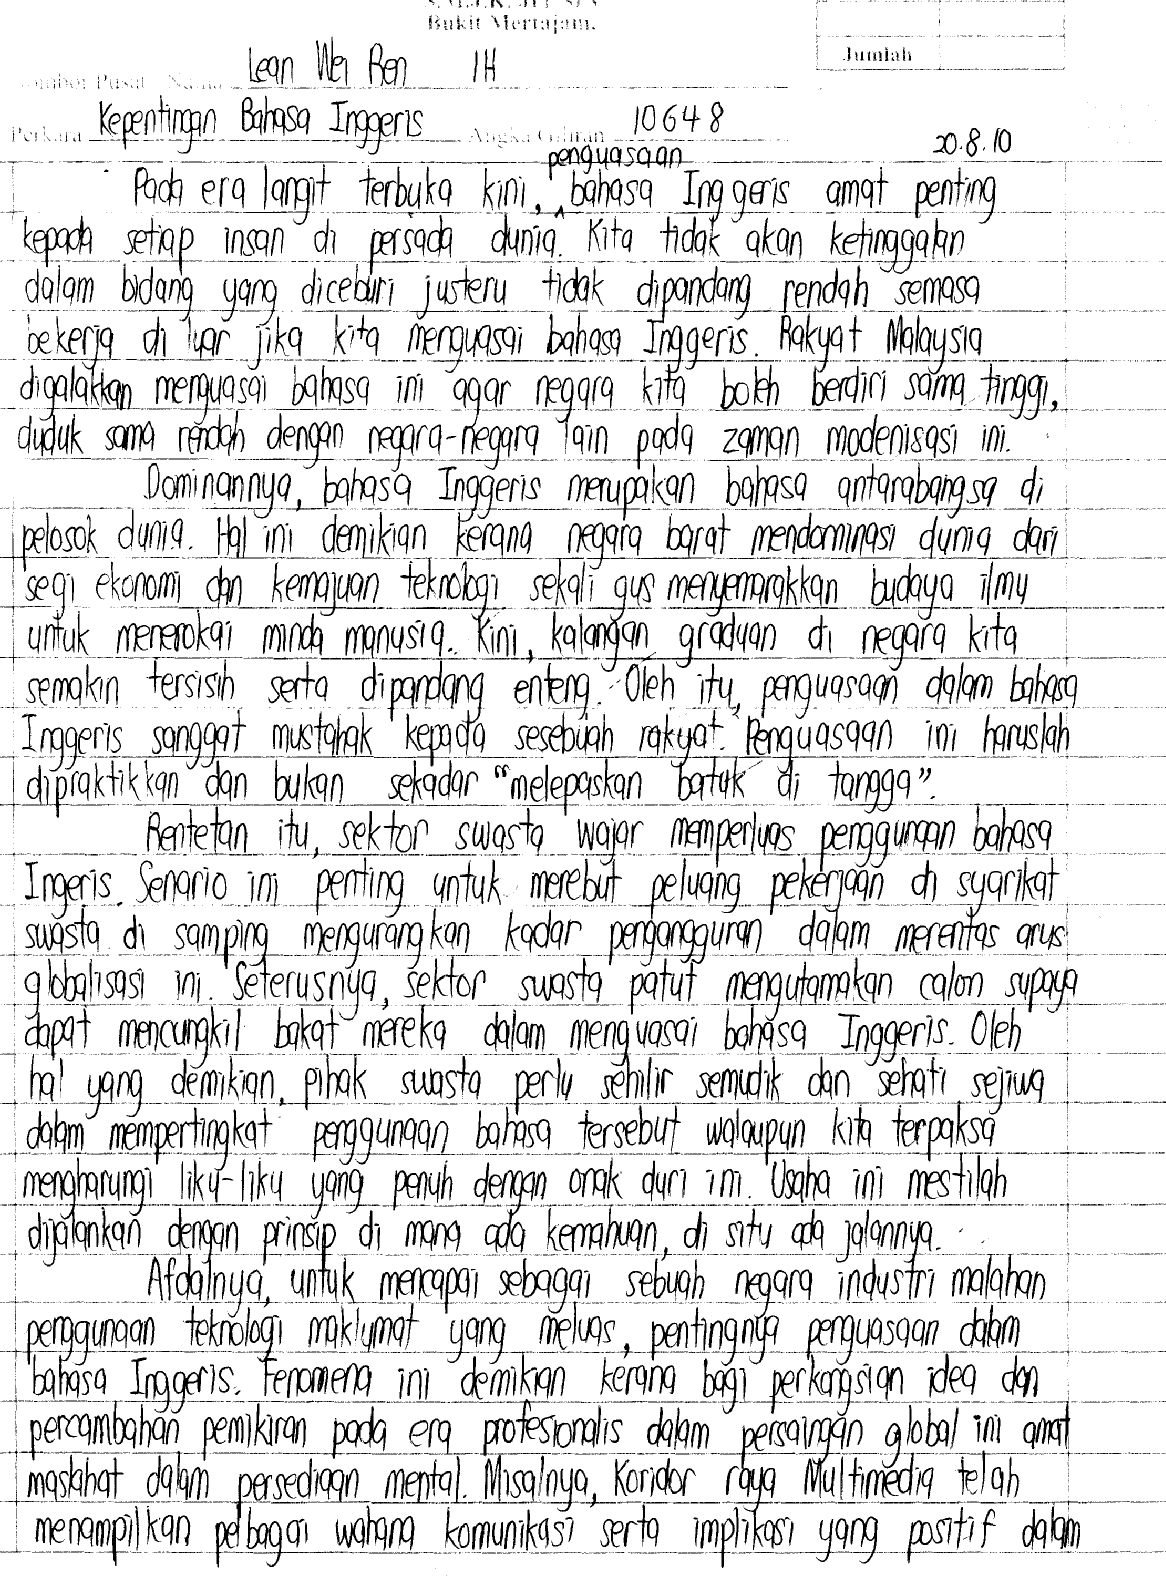 Bukit Mertajam.
Jumlah
Pusat Nama Lean Wei Ren 1H
Perkara Kepentingan Bahasa Inggeris Angka Giliran 10648
20.8.10
penguasaan
Pada era langit terbuka kini, ^ bahasa Inggeris amat penting
kepada setiap insan di persada dunia. Kita tidak akan ketinggalan
dalam bidang yang diceburi justeru tidak dipandang rendah semasa
bekerja di luar jika kita menguasai bahasa Inggeris. Rakyat Malaysia
digalakkan menguasai bahasa ini agar negara kita boleh berdiri sama tinggi,
duduk sama rendah dengan negara-negara lain pada zaman modenisasi ini.
Dominannya, bahasa Inggeris merupakan bahasa antarabangsa di
pelosok dunia. Hal ini demikian kerana negara barat mendominasi dunia dari
segi ekonomi dan kemajuan teknologi sekali gus menyemarakkan budaya ilmu
untuk menerokai minda manusia. Kini, kalangan graduan di negara kita
semakin tersisih serta dipandang enteng. Oleh itu, penguasaan dalam bahasa
Inggeris sanggat mustahak kepada sesebuah rakyat. Penguasaan ini haruslah
dipraktikkan dan bukan sekadar "melepaskan batuk di tangga".
Rentetan itu, sektor swasta wajar memperluas penggunaan bahasa
Ingeris. Senario ini penting untuk merebut peluang pekerjaan di syarikat
swasta di samping mengurangkan kadar pengangguran dalam merentas arus
globalisasi ini. Seterusnya, sektor swasta patut mengutamakan calon supaya
dapat mencungkil bakat mereka dalam menguasai bahasa Inggeris. Oleh
hal yang demikian, pihak swasta perlu sehilir semudik dan sehati sejiwa
dalam mempertingkat penggunaan bahasa tersebut walaupun kita terpaksa
mengharungi liku-liku yang penuh dengan onak duri ini. Usaha ini mestilah
dijalankan dengan prinsip di mana ada kemahuan, di situ ada jalannya.
Afdalnya, untuk mencapai sebagai sebuah negara industri malahan
penggunaan teknologi maklumat yang meluas, pentingnya penguasaan dalam
bahasa Inggeris. Fenomena ini demikian kerana bagi perkongsian idea dan
percambahan pemikiran pada era profesionalis dalam persaingan global ini amat
maslahat dalam persediaan mental. Misalnya, Koridor raya Multimedia telah
menampilkan pelbagai wahana komunikasi serta implikasi yang positif dalam